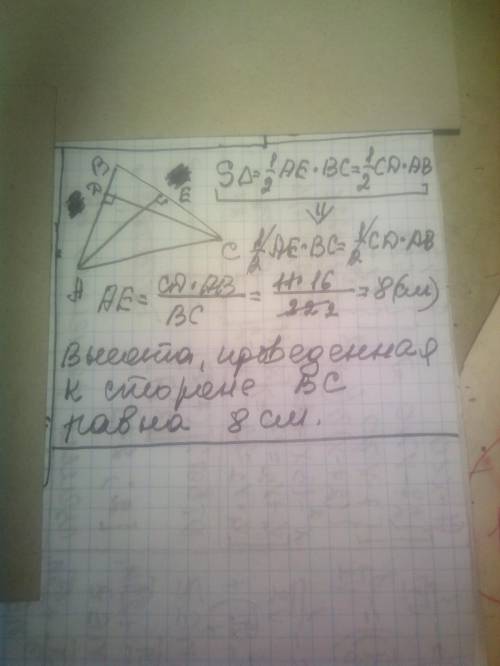 B
D
E
C
A
S△ = 1/2 AE · BC = 1/2 CD · AB
⇓
1/2 AE · BC = 1/2 CD · AB
AE = CD · AB / BC = 11 · 16 / 22 2 = 8 (см)
Высота, проведенная
к стороне BC
равна 8 см.